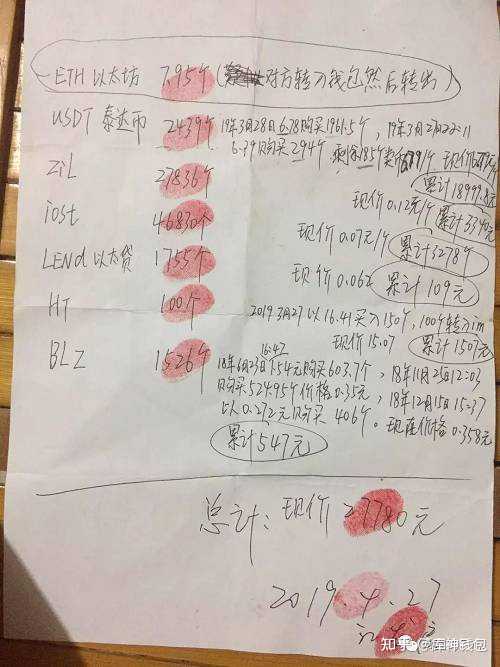 ETH 以太坊 7.95个 (对方转入钱包然后转出)
USDT 泰达币 2439个 19年3月28日 6.78购买1961.5个, 19年3月27日22:11
6.79购买294个 剩余185个 现价
累计18999.8元
ZiL 27836个 现价0.12元/个 累计3340元
iost 46830个 现价0.07元/个 累计3278个
LENd 以太贷 1755个 现价0.062 累计109元
HT 100个 2019 3月27以16.41买入150个, 100个转入im
现价15.07 累计1507元
BLZ 1526个 16:42
18年6月23日1.54元购买603.7个, 18年10月25日12:03
购买524.95个价格0.35元, 18年12月15日15:37
以0.272元购买406个。现在价格0.358元
累计547元
总计: 现价27780元
2019.4.27
知乎 @库神钱包